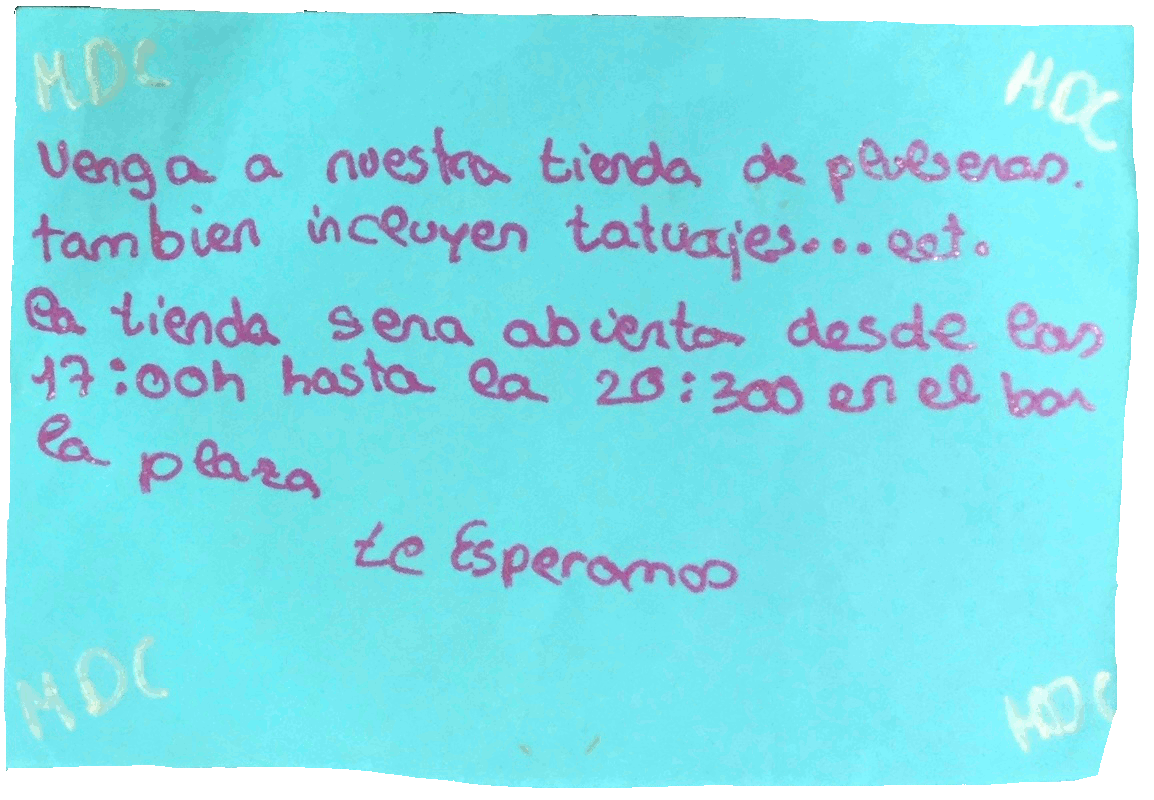 MDC MDC
Venga a nuestra tienda de pulseras.
tambien incluyen tatuajes... ect.
la tienda sera abierta desde las
17:00h hasta la 20:300 en el bar
la plaza
te Esperamos
MDC MDC